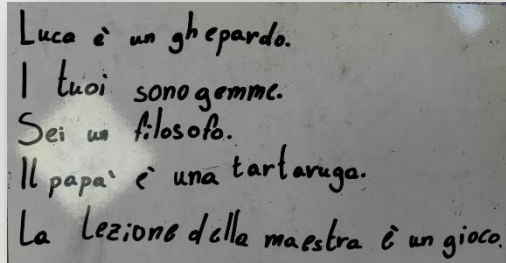 Luca è un ghepardo.
I tuoi sono gemme.
Sei un filosofo.
Il papà è una tartaruga.
La lezione della maestra è un gioco.